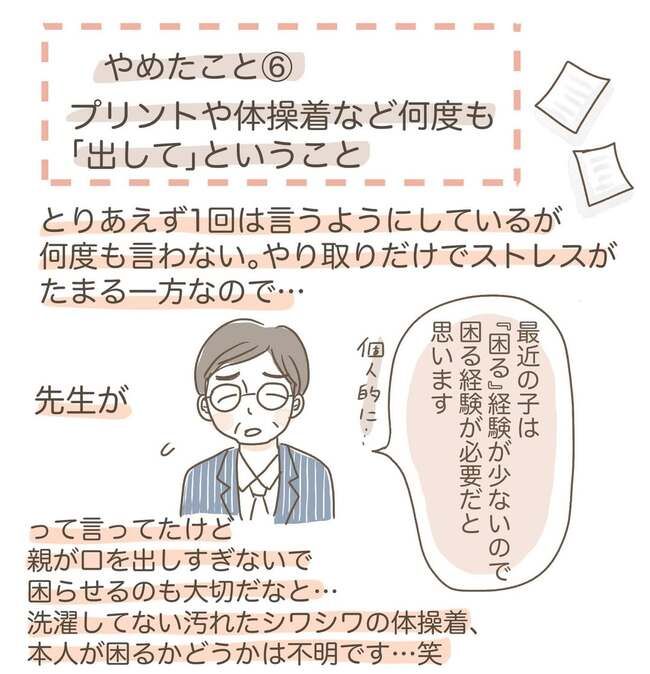 やめたこと⑥
プリントや体操着など何度も
「出して」ということ
とりあえず1回は言うようにしているが
何度も言わない。やり取りだけでストレスが
たまる一方なので…
最近の子は
『困る』経験が少ないので
困る経験が必要だと
思います
個人的に…
先生が
って言ってたけど
親が口を出しすぎないで
困らせるのも大切だなと…
洗濯してない汚れたシワシワの体操着、
本人が困るかどうかは不明です…笑